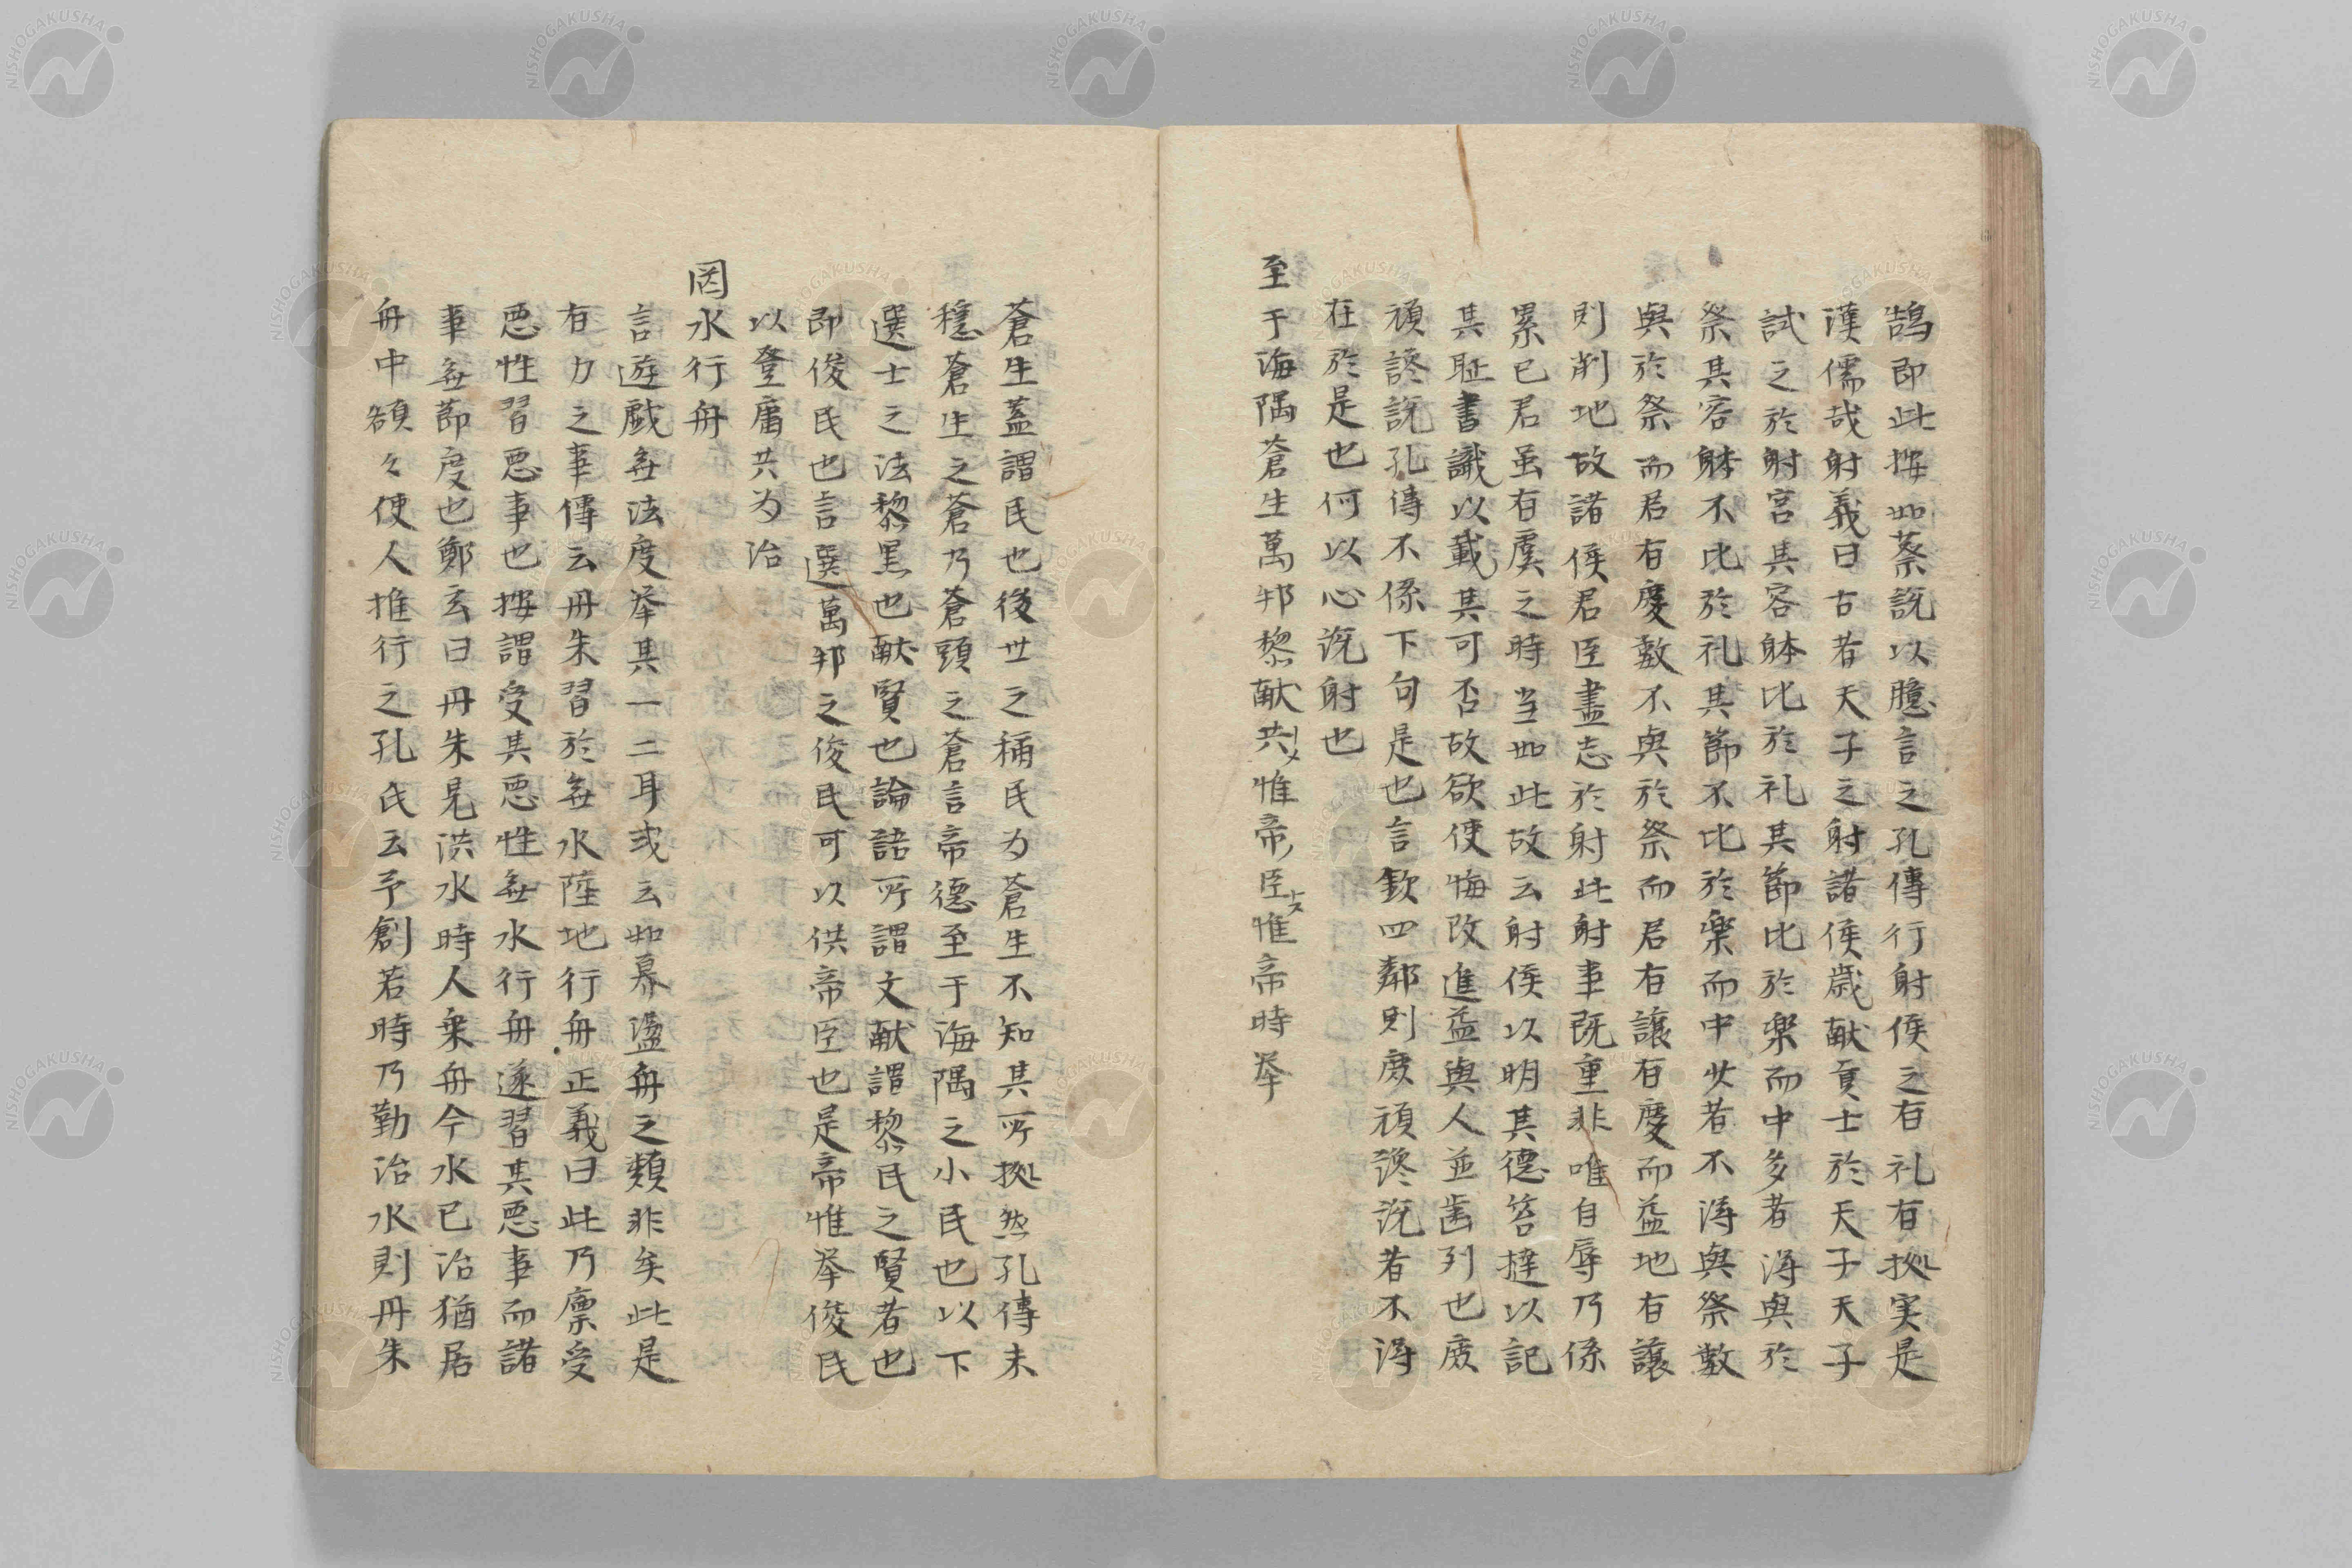 鵠即此按如蔡説以臆言之孔傳行射侯之有礼有拠実是
漢儒哉射義曰古者天子之射諸侯歳献貢士於天子天子
試之於射宮其容躰比於礼其節比於楽而中多者得與於
祭其容躰不比於礼其節不比於楽而中少者不得與祭數
與於祭而君有慶數不與於祭而君有讓有慶而益地有讓
則削地故諸侯君臣盡志於射此射事既重非唯自辱乃係
累已君虽有虞之時当如此故云射侯以明其德笞撻以記
其耻書識以載其可否故欲使悔改進益與人並歯列也庶
頑讒説孔傳不係下句是也言欽四鄰則庶頑讒説者不得
在於是也何以心説射也
至于海隅蒼生萬邦黎献共惟帝臣惟帝時挙
蒼生蓋謂民也後世之稱民为蒼生不知其所拠然孔傳未
穩蒼生之蒼乃蒼頭之蒼言帝德至于海隅之小民也以下
選士之法黎黒也献賢也論語所謂文献謂黎民之賢者也
即俊民也言選萬邦之俊民可以供帝臣也是帝惟挙俊民
以登庸共为治
罔水行舟
言遊戯無法度挙其一二耳或云如奡盪舟之類非矣此是
有力之事傳云丹朱習於無水陸地行舟正義曰此乃禀受
悪性習悪事也按謂受其悪性無水行舟遂習其悪事而諸
事無節度也鄭玄曰丹朱見洪水時人乗舟今水已治猶居
舟中額々使人推行之孔氏云予創若時乃勤治水則丹朱
NISHOGAKUSHA